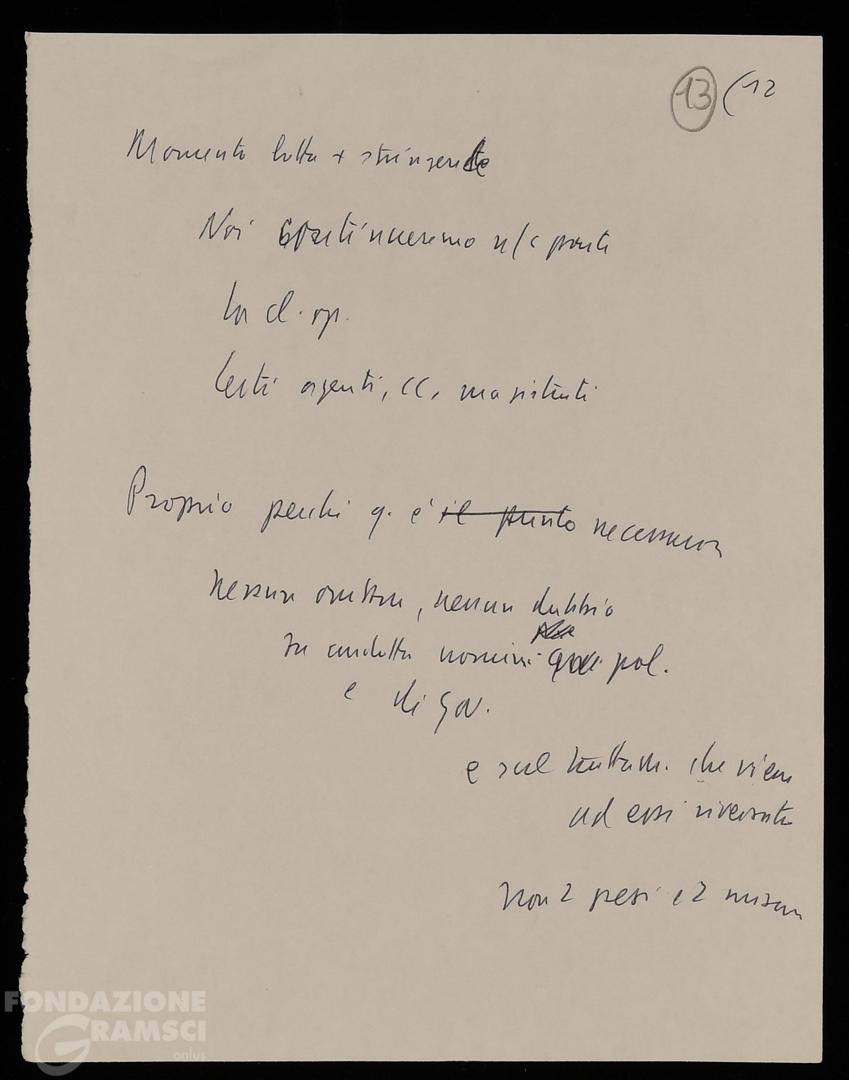 13 (12
Momento lotta + stringente
Noi continueremo n/ ponti
la cl. op.
Certi agenti, CC, magistrati
Proprio perché q. è il punto necessario
nessun ombra, nessun dubbio
su condotta uomini pol.
e di gov.
e sul trattam. che viene
ad essi riservato
Non 2 pesi e 2 misure
FONDAZIONE
GRAMSCI
onlus